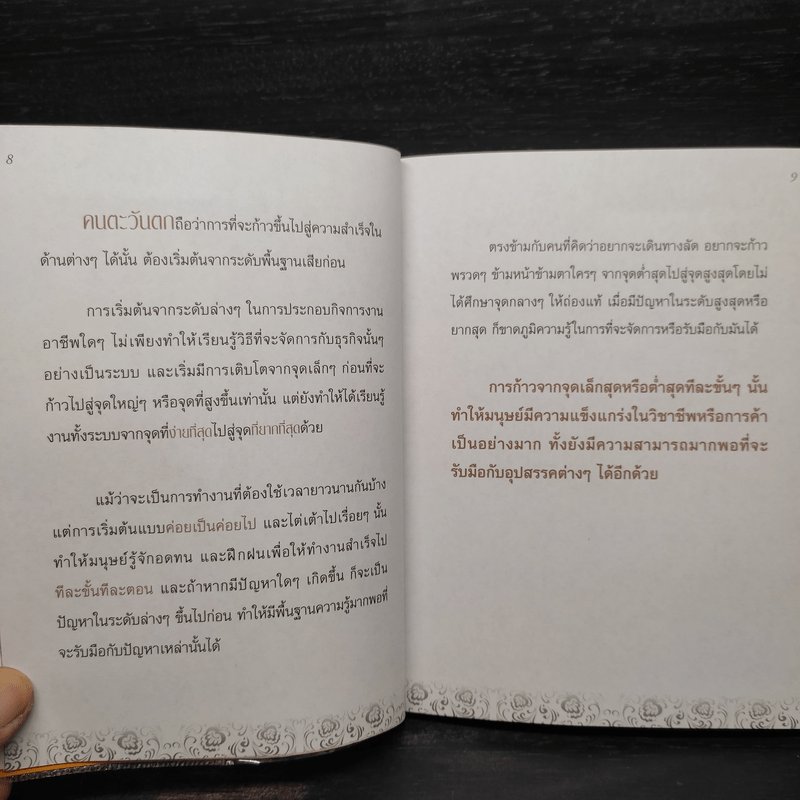 8
คนตะวันตกถือว่าการที่จะก้าวขึ้นไปสู่ความสำเร็จใน
ด้านต่างๆ ได้นั้น ต้องเริ่มต้นจากระดับพื้นฐานเสียก่อน
การเริ่มต้นจากระดับล่างๆ ในการประกอบกิจการงาน
อาชีพใดๆ ไม่เพียงทำให้เรียนรู้วิธีที่จะจัดการกับธุรกิจนั้นๆ
อย่างเป็นระบบ และเริ่มมีการเติบโตจากจุดเล็กๆ ก่อนที่จะ
ก้าวไปสู่จุดใหญ่ๆ หรือจุดที่สูงขึ้นเท่านั้น แต่ยังทำให้ได้เรียนรู้
งานทั้งระบบจากจุดที่ง่ายที่สุดไปสู่จุดที่ยากที่สุดด้วย
แม้ว่าจะเป็นการทำงานที่ต้องใช้เวลายาวนานกันบ้าง
แต่การเริ่มต้นแบบค่อยเป็นค่อยไป และไต่เต้าไปเรื่อยๆ นั้น
ทำให้มนุษย์รู้จักอดทน และฝึกฝนเพื่อให้ทำงานสำเร็จไป
ทีละขั้นทีละตอน และถ้าหากมีปัญหาใดๆ เกิดขึ้น ก็จะเป็น
ปัญหาในระดับล่างๆ ขึ้นไปก่อน ทำให้มีพื้นฐานความรู้มากพอที่
จะรับมือกับปัญหาเหล่านั้นได้
9
ตรงข้ามกับคนที่คิดว่าอยากจะเดินทางลัด อยากจะก้าว
พรวดๆ ข้ามหน้าข้ามตาใครๆ จากจุดต่ำสุดไปสู่จุดสูงสุดโดยไม่
ได้ศึกษาจุดกลางๆ ให้ถ่องแท้ เมื่อมีปัญหาในระดับสูงสุดหรือ
ยากสุด ก็ขาดภูมิความรู้ในการที่จะจัดการหรือรับมือกับมันได้
การก้าวจากจุดเล็กสุดหรือต่ำสุดทีละขั้นๆ นั้น
ทำให้มนุษย์มีความแข็งแกร่งในวิชาชีพหรือการค้า
เป็นอย่างมาก ทั้งยังมีความสามารถมากพอที่จะ
รับมือกับอุปสรรคต่างๆ ได้อีกด้วย